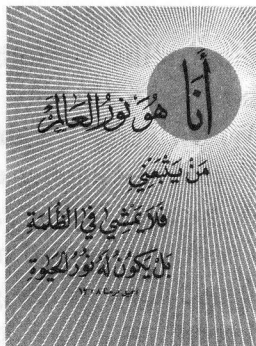 أَنَا هُوَ نُورُ العَالَمِ
مَنْ يَتْبَعْنِي
فَلَا يَمْشِي فِي الظُّلمَةِ
بَلْ يَكُونُ لَهُ نُورُ الحَيٰوةِ